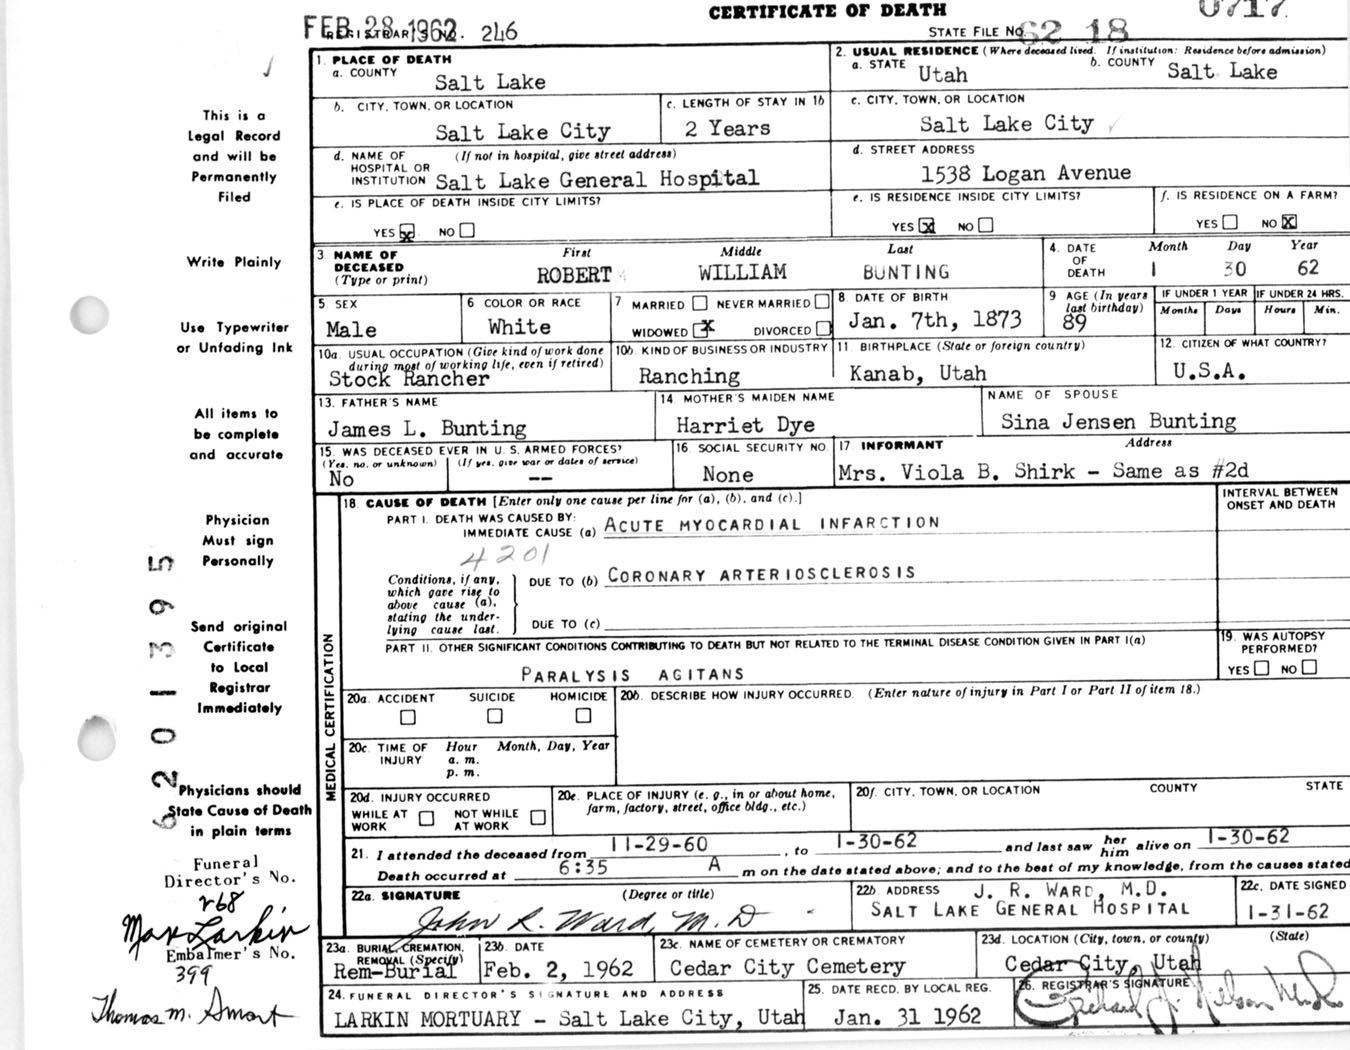 CERTIFICATE OF DEATH
0717
FEB 28 1962
REGISTRAR'S NO. 246
STATE FILE NO. 62 18
This is a
Legal Record
and will be
Permanently
Filed
Write Plainly
Use Typewriter
or Unfading Ink
All items to
be complete
and accurate
Physician
Must sign
Personally
Send original
Certificate
to Local
Registrar
Immediately
Physicians should
State Cause of Death
in plain terms
Funeral
Director's No.
268
Max Larkin
Embalmer's No.
399
Thomas M. Smart
6201395
1. PLACE OF DEATH
a. COUNTY
Salt Lake
2. USUAL RESIDENCE (Where deceased lived. If institution: Residence before admission)
a. STATE Utah b. COUNTY Salt Lake
b. CITY, TOWN, OR LOCATION
Salt Lake City
c. LENGTH OF STAY IN 1b
2 Years
c. CITY, TOWN, OR LOCATION
Salt Lake City
d. NAME OF HOSPITAL OR INSTITUTION (If not in hospital, give street address)
Salt Lake General Hospital
d. STREET ADDRESS
1538 Logan Avenue
e. IS PLACE OF DEATH INSIDE CITY LIMITS?
YES X NO
e. IS RESIDENCE INSIDE CITY LIMITS?
YES X NO
f. IS RESIDENCE ON A FARM?
YES NO X
3 NAME OF DECEASED (Type or print)
First Middle Last
ROBERT WILLIAM BUNTING
4. DATE OF DEATH
Month Day Year
1 30 62
5. SEX
Male
6 COLOR OR RACE
White
7 MARRIED NEVER MARRIED
WIDOWED X DIVORCED
8 DATE OF BIRTH
Jan. 7th, 1873
9 AGE (In years last birthday)
89
IF UNDER 1 YEAR
Months Days
IF UNDER 24 HRS.
Hours Min.
10a. USUAL OCCUPATION (Give kind of work done during most of working life, even if retired)
Stock Rancher
10b. KIND OF BUSINESS OR INDUSTRY
Ranching
11 BIRTHPLACE (State or foreign country)
Kanab, Utah
12. CITIZEN OF WHAT COUNTRY?
U.S.A.
13. FATHER'S NAME
James L. Bunting
14 MOTHER'S MAIDEN NAME
Harriet Dye
NAME OF SPOUSE
Sina Jensen Bunting
15. WAS DECEASED EVER IN U. S. ARMED FORCES?
(Yes, no, or unknown) (If yes, give war or dates of service)
No --
16 SOCIAL SECURITY NO.
None
17 INFORMANT Address
Mrs. Viola B. Shirk - Same as #2d
MEDICAL CERTIFICATION
18. CAUSE OF DEATH [Enter only one cause per line for (a), (b), and (c).]
INTERVAL BETWEEN
ONSET AND DEATH
PART I. DEATH WAS CAUSED BY:
IMMEDIATE CAUSE (a) ACUTE MYOCARDIAL INFARCTION
4201
Conditions, if any,
which gave rise to
above cause (a),
stating the under-
lying cause last.
DUE TO (b) CORONARY ARTERIOSCLEROSIS
DUE TO (c)
PART II. OTHER SIGNIFICANT CONDITIONS CONTRIBUTING TO DEATH BUT NOT RELATED TO THE TERMINAL DISEASE CONDITION GIVEN IN PART I(a)
PARALYSIS AGITANS
19. WAS AUTOPSY
PERFORMED?
YES NO
20a. ACCIDENT SUICIDE HOMICIDE
20b. DESCRIBE HOW INJURY OCCURRED. (Enter nature of injury in Part I or Part II of item 18.)
20c. TIME OF INJURY
Hour Month, Day, Year
a. m.
p. m.
20d. INJURY OCCURRED
WHILE AT WORK NOT WHILE AT WORK
20e. PLACE OF INJURY (e. g., in or about home,
farm, factory, street, office bldg., etc.)
20f. CITY, TOWN, OR LOCATION COUNTY STATE
21. I attended the deceased from 11-29-60, to 1-30-62 and last saw her him alive on 1-30-62
Death occurred at 6:35 A m on the date stated above; and to the best of my knowledge, from the causes stated
22a. SIGNATURE (Degree or title)
John R. Ward, M.D
22b. ADDRESS J. R. WARD, M.D.
SALT LAKE GENERAL HOSPITAL
22c. DATE SIGNED
1-31-62
23a. BURIAL, CREMATION,
REMOVAL (Specify)
Rem-Burial
23b. DATE
Feb. 2, 1962
23c. NAME OF CEMETERY OR CREMATORY
Cedar City Cemetery
23d. LOCATION (City, town, or county) (State)
Cedar City, Utah
24. FUNERAL DIRECTOR'S SIGNATURE AND ADDRESS
LARKIN MORTUARY - Salt Lake City, Utah
25. DATE RECD. BY LOCAL REG.
Jan. 31 1962
26. REGISTRAR'S SIGNATURE